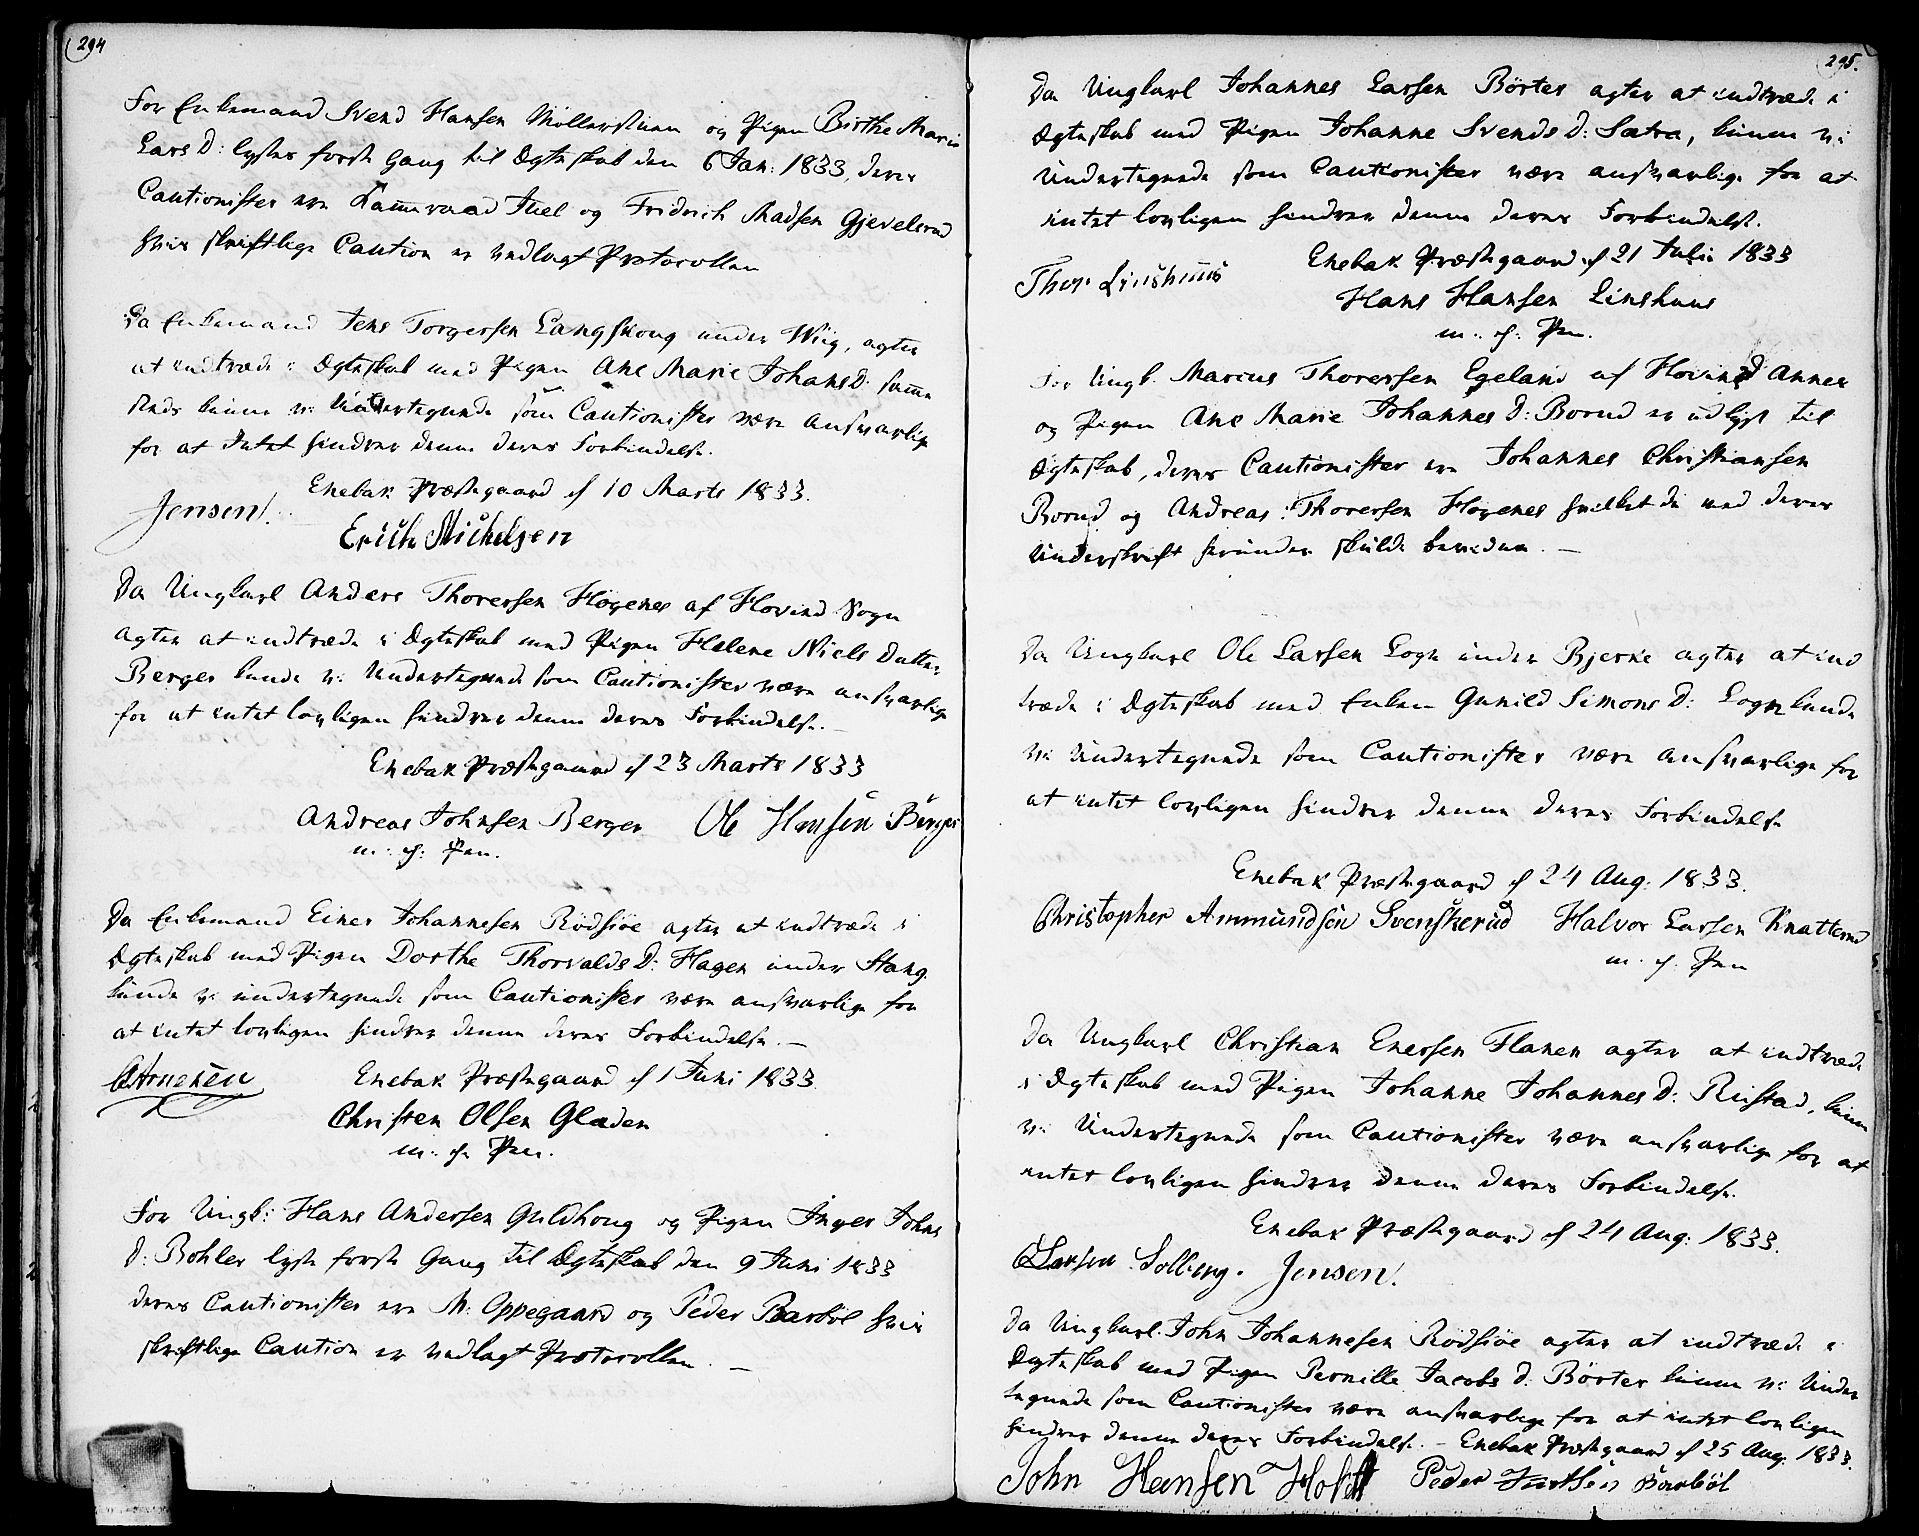 294
For Enkemand Svend Hansen Møllerstuen og Pigen Birthe Marie
Lars D: lyses første Gang til Ægteskab den 6 Jan: 1833, deres
Cautionister ere Kammeraad Juel og Fridrich Madsen Gjevelsrud
hvis skriftlige Caution er vedlagt Protocollen
Da Enkemand Jens Torgersen Langskoug under Wiig, agter
at indtræde i Ægteskab med Pigen Ane Marie Johans D. samme
steds kunne vi Undertegnede som Cautionister være Ansvarlige
for at Intet hindrer denne deres Forbindelse.
Enebak Præstegaard d 10 Marts 1833.
Jensen
Erich Michelsen
Da Ungkarl Anders Thoresen Høgenes af Hovind Sogn
agter at indtræde i Ægteskab med Pigen Helene Niels Datter
Berger kunde vi Undertegnede som Cautionister være ansvarlige
for at intet lovligen hindrer denne deres Forbindelse. –
Enebak Præstegaard d 23 Marts 1833
Andreas Johnsen Berger Ole Hansen Berger
m. f. Pen.
Da Enkemand Einer Johannesen Rødsiøe agter at indtræde i
Ægteskab med Pigen Dorthe Thorvalds D: Hagen under Stang.
kunde vi undertegnede som Cautionister være ansvarlige for
at intet lovligen hindrer denne deres Forbindelse. –
Enebak Præstegaard d 1 Juni 1833.
Arnesen
Christen Olsen Gladen
m. f. Pen.
For Ungk: Hans Andersen Guldhoug og Pigen Inger Johns
D: Bohler lyst første Gang til Ægteskab den 9 Juni 1833
deres Cautionister ere M: Oppegaard og Peder Barbøl hvis
skriftlige Caution er vedlagt Protocollen. –
295.
Da Ungkarl Johannes Larsen Børter agter at indtræde i
Ægteskab med Pigen Johanne Svends D: Sætra, kunne vi
Undertegnede som Cautionister være ansvarlige for at
intet lovligen hindrer denne deres Forbindelse.
Enebak Præstegaard d 21 Juli 1833
Thor Linshuus
Hans Hansen Linshuus
m. f. Pen.
For Ungk. Marius Thoresen Egeland af Hovind Annex
og Pigen Ane Marie Johannes D: Borud er udlyst til
Ægteskab, deres Cautionister ere Johannes Christiansen
Borud og Andreas Thoresen Høgenes hvilket de med deres
Underskrift herunder skulde bevidne. –
Da Ungkarl Ole Larsen Logn under Bjerke agter at ind
træde i Ægteskab med Enken Gunild Simons D: Logn kunde
vi Undertegnede som Cautionister være ansvarlige for
at intet lovligen hindrer denne deres Forbindelse
Enebak Præstegaard d 24 Aug: 1833.
Christopher Ammundsen Svenskerud Halvor Larsen Knatterud
m. f. Pen
Da Ungkarl Christian Enersen Flanen agter at indtræde
i Ægteskab med Pigen Johanne Johannes D: Rustad, kunne
vi Undertegnede som Cautionister være ansvarlige for at
intet lovligen hindrer denne deres Forbindelse.
Enebak Præstegaard d 24 Aug: 1833.
Larsen Solberg. Jensen
Da Ungkarl John Johannesen Rødsiøe agter at indtræde i
Ægteskab med Pigen Pernille Jacobs D. Børter kunne vi Under
tegnede som Cautionister være ansvarlige for at intet lovligen
hindrer denne deres Forbindelse. – Enebak Præstegaard d 25 Aug. 1833.
John Hansen Peder Barbøl